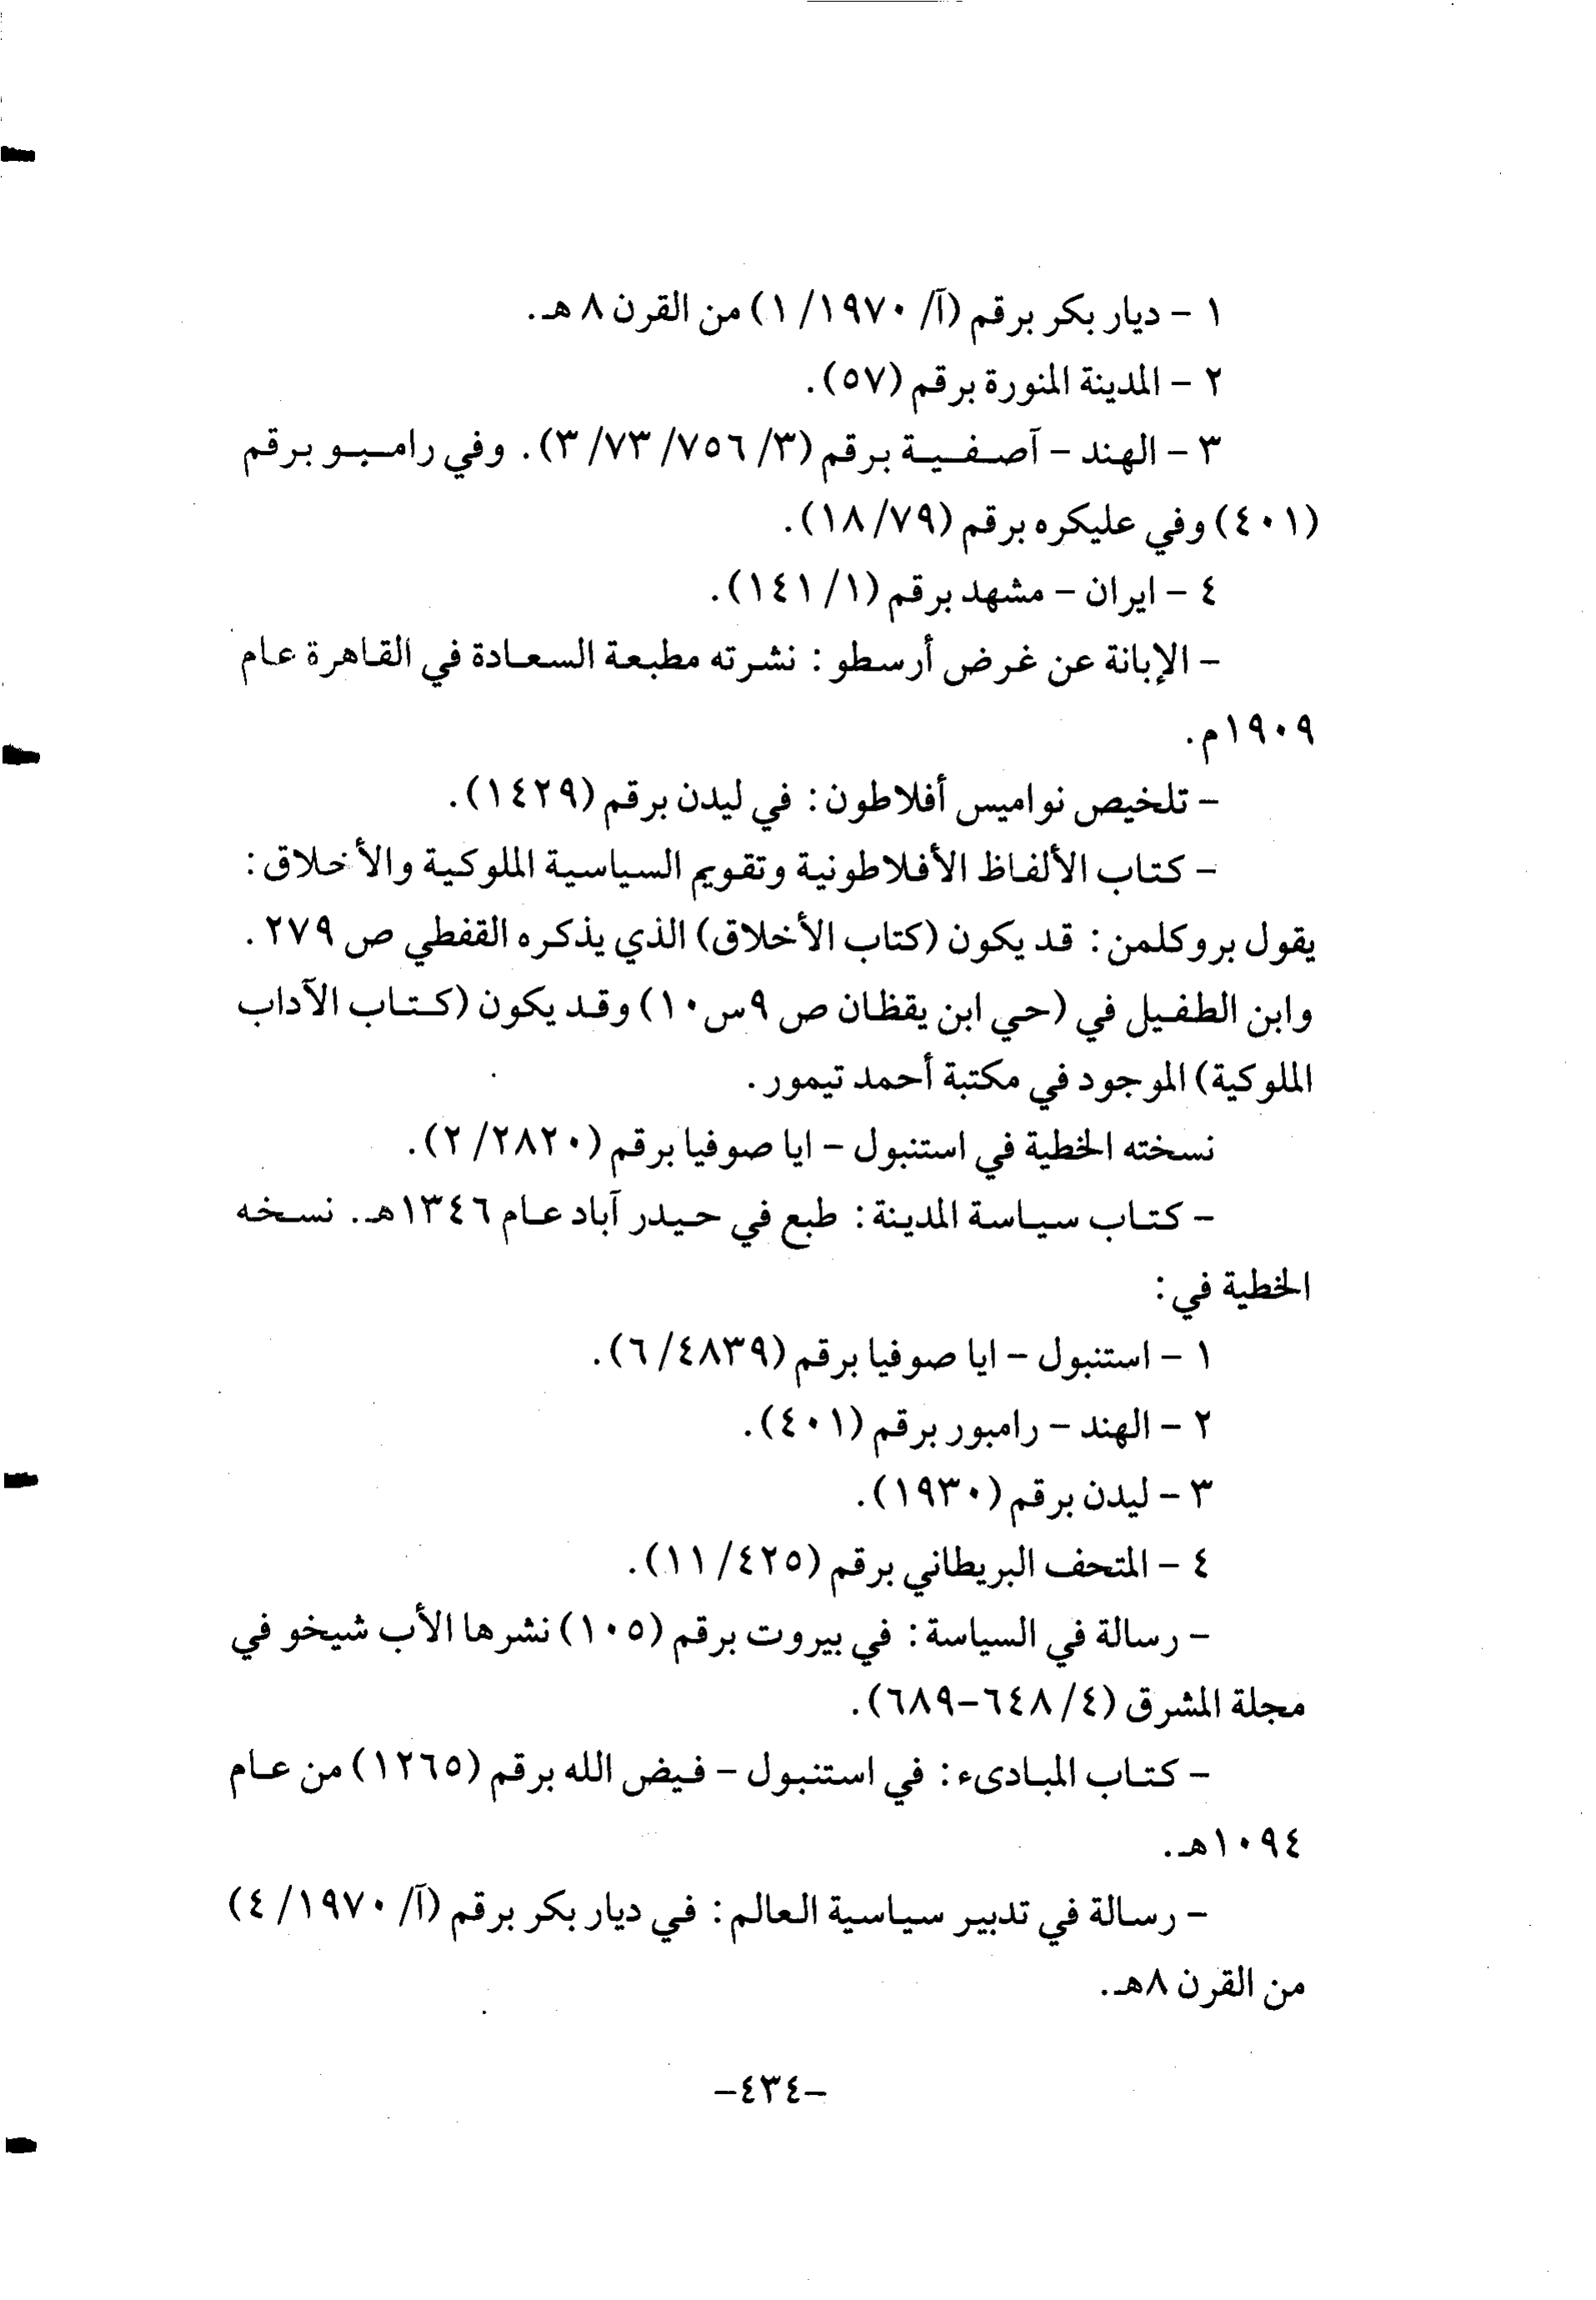 ١ - ديار بكر برقم (آ/ ١٩٧٠/ ١) من القرن ٨ هـ.
٢ - المدينة المنورة برقم (٥٧).
٣ - الهند - آصفية برقم (٣/ ٧٥٦/ ٧٣/ ٣). وفي رامبو برقم
(٤٠١) وفي عليكره برقم (٧٩/ ١٨).
٤ - ايران - مشهد برقم (١/ ١٤١).
- الإبانة عن غرض أرسطو: نشرته مطبعة السعادة في القاهرة عام
١٩٠٩م.
- تلخيص نواميس أفلاطون: في ليدن برقم (١٤٢٩).
- كتاب الألفاظ الأفلاطونية وتقويم السياسية الملوكية والأخلاق:
يقول بروكلمن: قد يكون (كتاب الأخلاق) الذي يذكره القفطي ص ٢٧٩.
وابن الطفيل في (حي ابن يقظان ص ٩س١٠) وقد يكون (كتاب الآداب
الملوكية) الموجود في مكتبة أحمد تيمور.
نسخته الخطية في استنبول - ايا صوفيا برقم (٢٨٢٠/ ٢).
- كتاب سياسة المدينة: طبع في حيدر آباد عام ١٣٤٦هـ. نسخه
الخطية في:
١ - استنبول - ايا صوفيا برقم (٤٨٣٩/ ٦).
٢ - الهند - رامبور برقم (٤٠١).
٣ - ليدن برقم (١٩٣٠).
٤ - المتحف البريطاني برقم (٤٢٥/ ١١).
- رسالة في السياسة: في بيروت برقم (١٠٥) نشرها الأب شيخو في
مجلة المشرق (٤/ ٦٤٨-٦٨٩).
- كتاب المبادىء: في استنبول - فيض الله برقم (١٢٦٥) من عام
١٠٩٤هـ.
- رسالة في تدبير سياسية العالم: في ديار بكر برقم (آ/ ١٩٧٠/ ٤)
من القرن ٨هـ.
-٤٣٤-